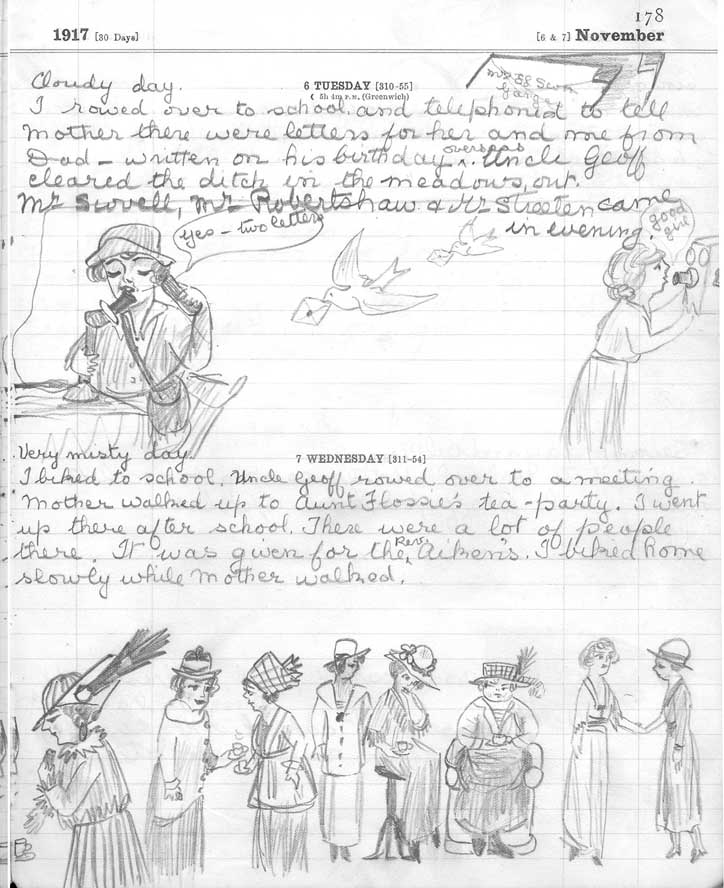 178
1917 [30 Days] [6 & 7] November
Cloudy day.
6 TUESDAY [310-55]
☾ 5h 4m P.M. (Greenwich)
I rowed over to school and telephoned to tell
Mother there were letters for her and me from
Dad - written on his birthday overseas. Uncle Geoff
cleared the ditch in the meadows out.
Mr Scovell, Mr Robertshaw & Mr Streeten came
in evening.
yes - two letters
good
girl
Very misty day.
7 WEDNESDAY [311-54]
I biked to school. Uncle Geoff rowed over to a meeting.
Mother walked up to Aunt Flossie's tea-party. I went
up there after school. There were a lot of people
there. It was given for the Rev. Aitken's. I biked home
slowly while Mother walked.